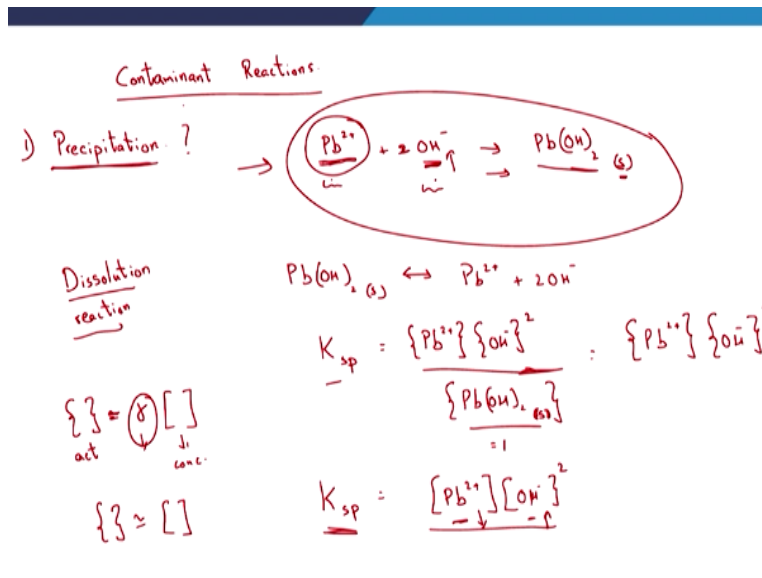 Contaminant Reactions.
1) Precipitation ?
→ Pb²⁺ + 2 OH⁻ ↑ → → Pb(OH)₂ (s)
Dissolution
reaction
Pb(OH)₂ (s) ↔ Pb²⁺ + 2OH⁻
K sp = {Pb²⁺}{OH⁻}² / {Pb(OH)₂ (s)} = {Pb²⁺}{OH⁻}
= 1
{ } = γ [ ]
act conc.
{ } ≃ [ ]
K sp = [Pb²⁺][OH⁻]²